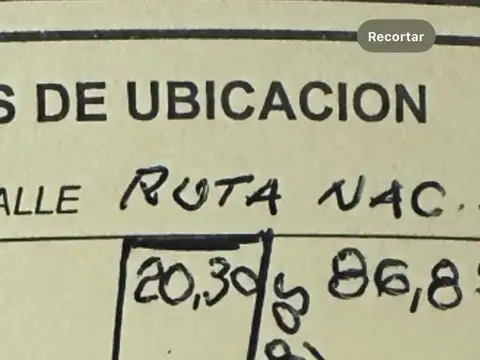 Recortar
S DE UBICACION
ALLE RUTA NAC.
20,30 86,8